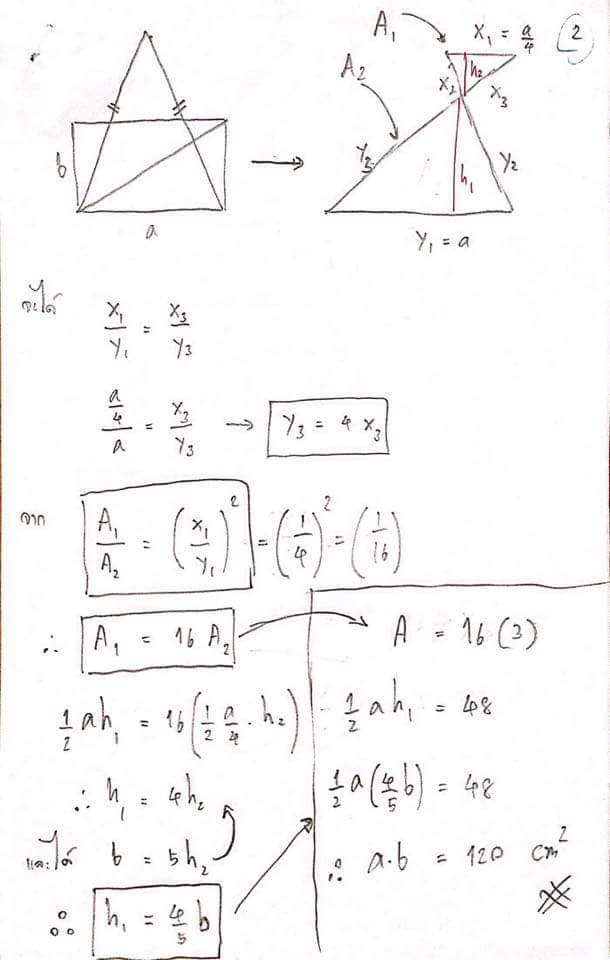 2
A₁
X₁ = a/4
A₂
h₂
X₂
X₃
b
Y₃
Y₂
h₁
a
Y₁ = a
จะได้ X₁/Y₁ = X₃/Y₃
(a/4)/a = X₃/Y₃ → Y₃ = 4 X₃
จาก A₁/A₂ = (X₁/Y₁)² = (1/4)² = (1/16)
∴ A₁ = 16 A₂
1/2 ah₁ = 16(1/2 a/4 · h₂)
∴ h₁ = 4h₂
และได้ b = 5h₂
∴ h₁ = 4/5 b
A = 16(3)
1/2 a h₁ = 48
1/2 a(4/5 b) = 48
∴ a·b = 120 cm²